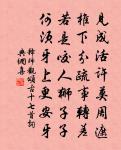 見成活計莫周遮
榷下分疏事轉差
若是咬人獅子子
何須牙上更安牙
釋坪觀頌古十七首詞
典網集